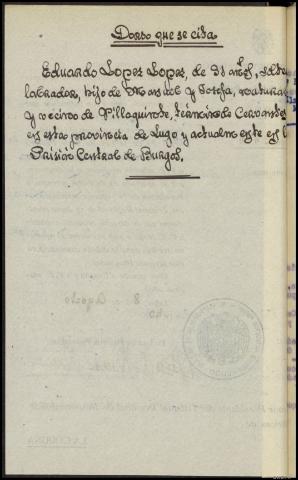 Dorso que se cita
Eduardo Lopez Lopez, de 31 años, solte
labrador, hijo de Manuel y Josefa, natural
y vecino de Villaquinte, término de Cervantes
en esta provincia de Lugo y actualmente en l
Prisión Central de Burgos.
8 Agosto
LA CORUÑA